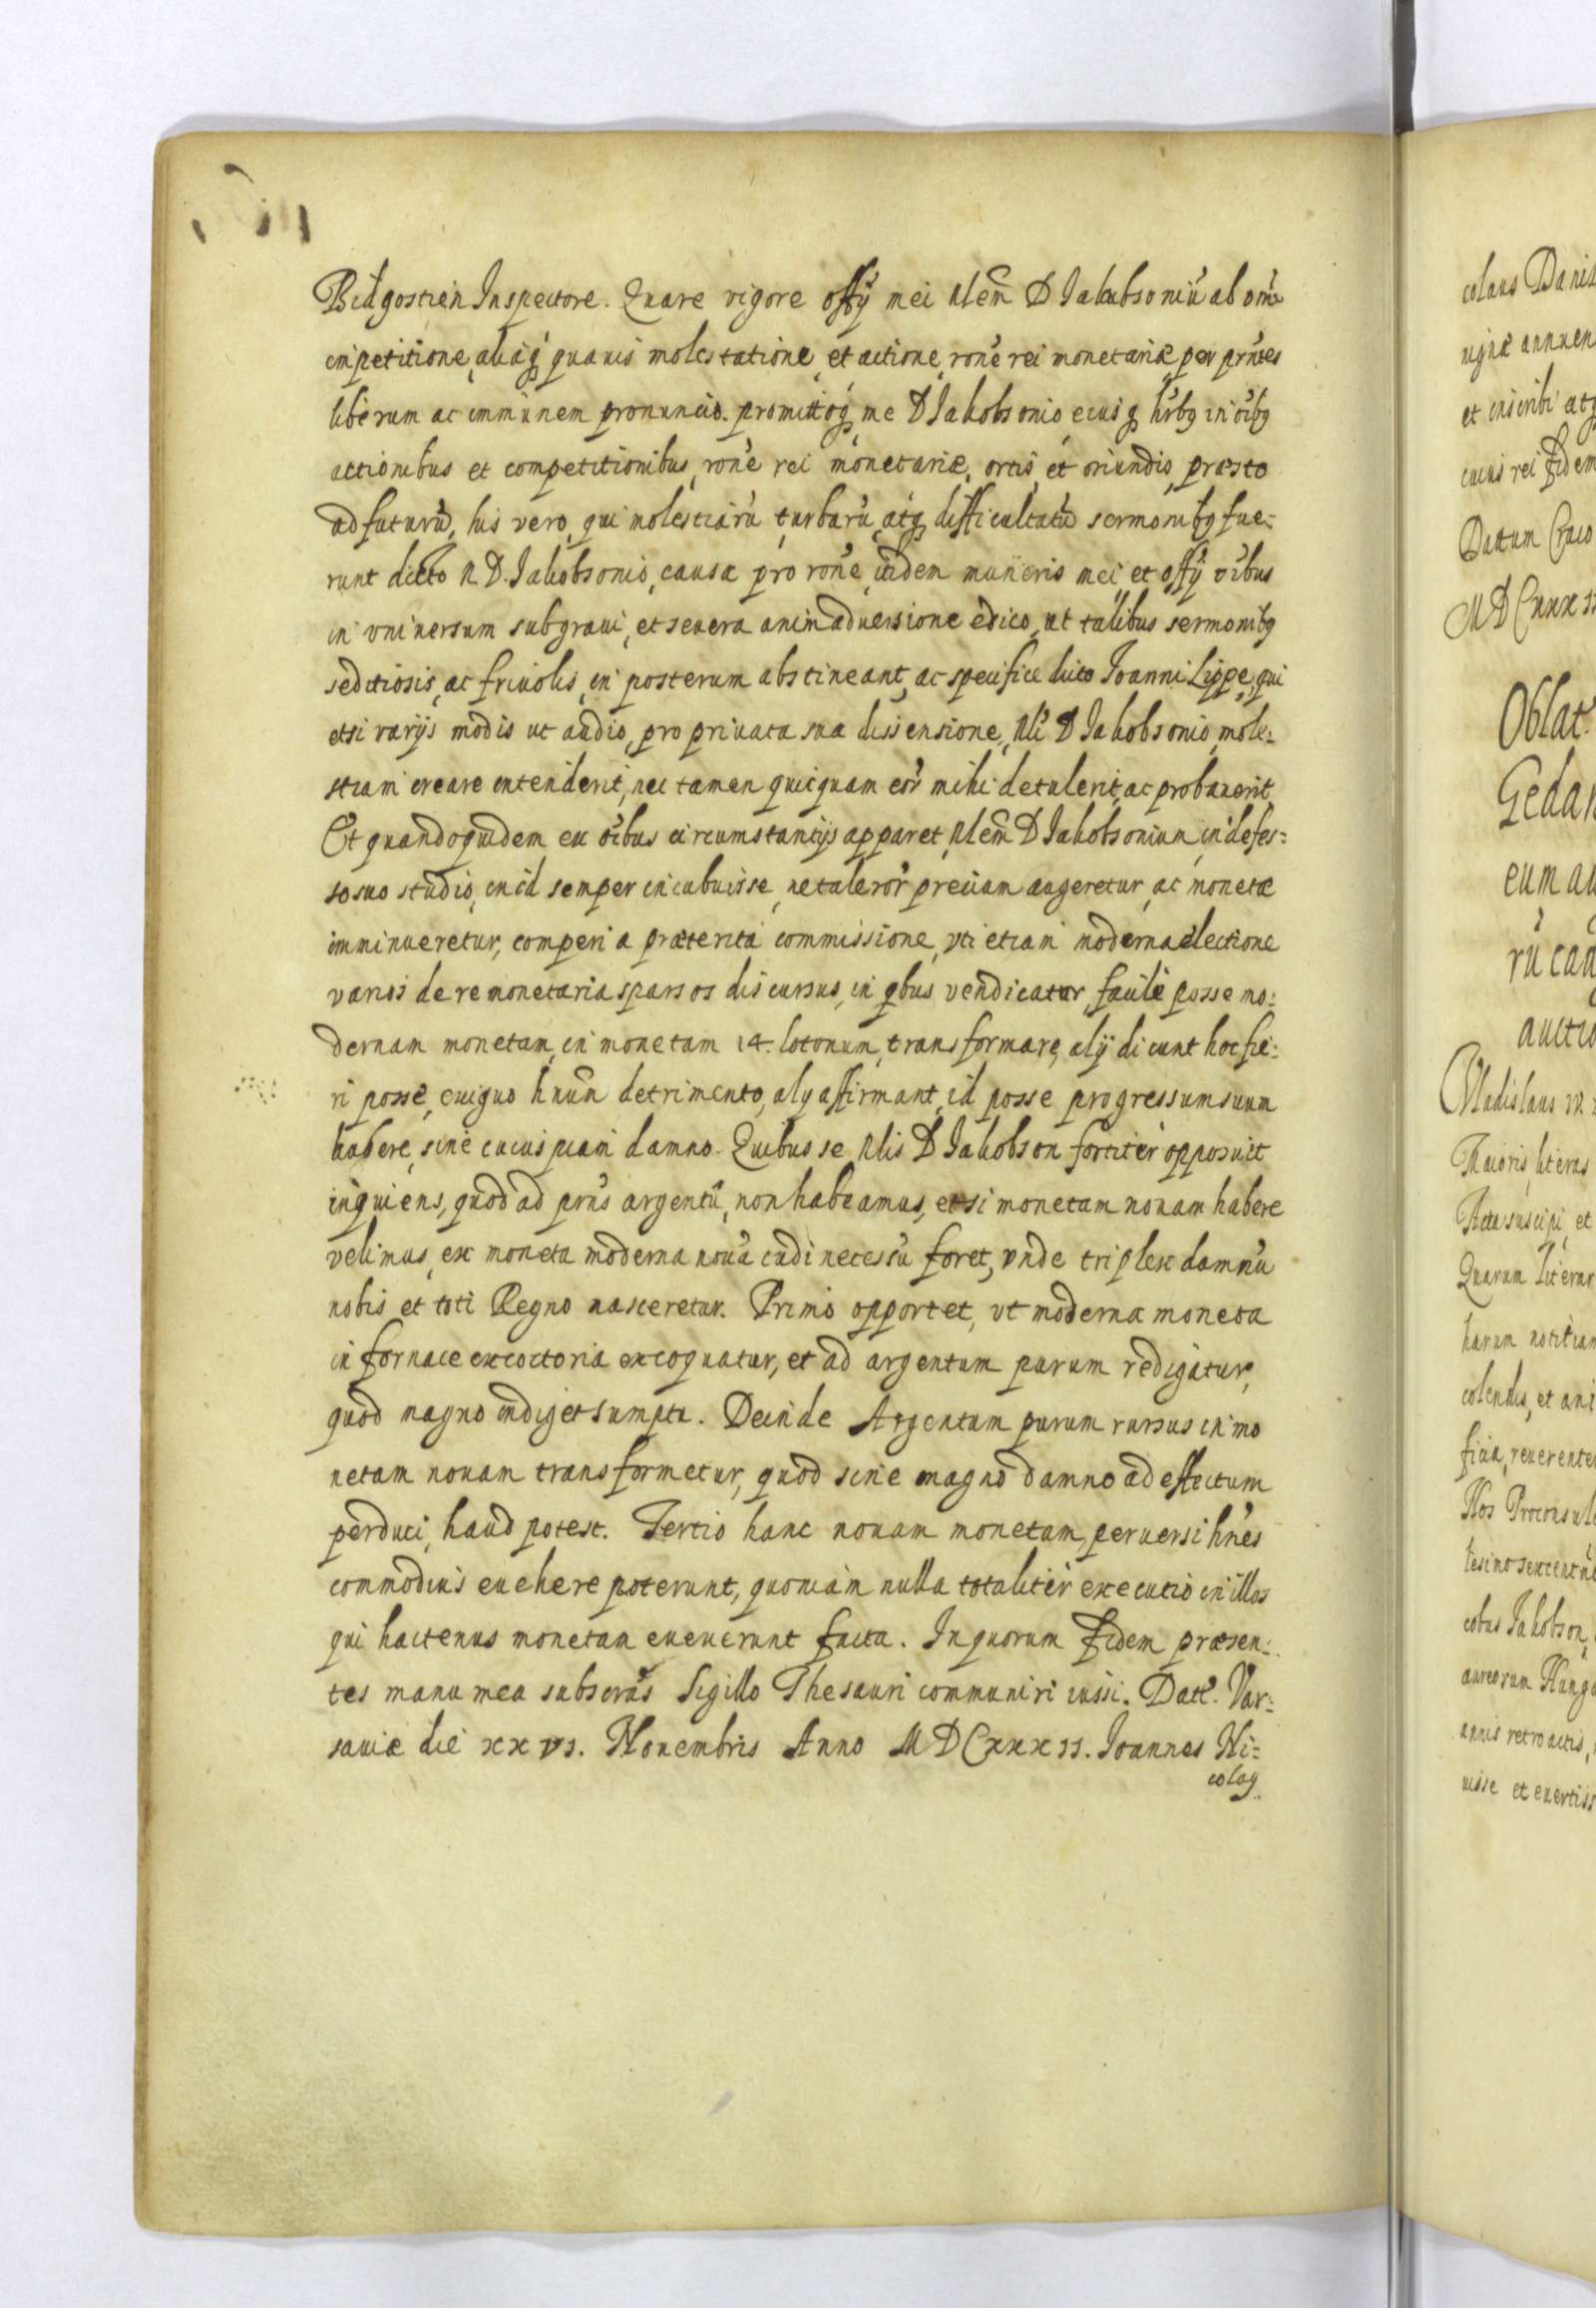 Bidgostien Inspectore. Quare vigore offÿ mei Nlem̃ D Iakubsoniũ ab om̃i
impetitione, aliaq́ȝ quauis molestatione, et actione, rone̕ rei monetariæ per prñtes
liberum ac immunem pronuncio. promittoq́ȝ me D Iakobsonio eiusq́ȝ hrb̕ȝ in oib̕ȝ
actionibus et competitionibus, rone̕ rei monetariæ, ortis, et oriundis, præsto
adfuturũ, his vero, qui molestiarũ, turbarũ, atq́ȝ difficultatũ sermonibȝ fue:
runt dicto N. D. Iakobsonio, causæ pro rone̕, iisdem muneris mei, et offÿ oĩbus
in vniuersum sub graui, et seuera animaduersione edico, ut talibus sermonibȝ
seditiosis, ac friuolis, in posterum abstineant, ac specifice dicto Ioanni Lippe, qui
etsi varijs modis ut audio, pro priuata sua dissensione, Nli̕ D Iakobsonio, mole:
stiam creare intenderit, nec tamen quicquam eor̃ mihi detulerit, ac probauerit
Et quandoquidem ex oĩbus circumstantijs apparet, Nlem̃ D Iakobsonium, indefes:
so suo studio, in id semper incubuisse, ne taleror̃ precium augeretur, ac monetæ
imminueretur, comperi a præterita commissione, vti etiam moderna electione
varios de re monetaria sparsos discursus, in qbus vendicatur, facile posse mo:
dernam monetam, in monetam 14. lotonum, transformare, alÿ dicunt hoc fie:
ri posse, exiguo hnũn detrimento, alÿ affirmant, id posse progressum suum
habere, sine cuiuspiam damno. Quibus se Nlis D Iakobson fortiter opposuit
inquiens, quod ad prñs argentũ, non habeamus, et si monetam nouam habere
velimus, ex moneta moderna noua cudi necessũ foret, vnde triplex damnũ
nobis et toti Regno nasceretur. Primo opportet, vt moderna moneta
in fornace excoctoria excoquatur, et ad argentum purum redigatur,
quod magno indiget sumptu. Deinde Argentum purum rursus in mo
netam nouam transformetur, quod sine magno damno ad effectum
perduci, haud potest. Tertio hanc nouam monetam, peruersi hñes
commodius euehere poterunt, quoniam nulla totaliter executio in illos
qui hactenus monetam euexerunt facta. In quorum fidem præsen:
tes manu mea subscras̃ Sigillo Thesauri communiri iussi. Datt̃. Var:
sauiæ die xxvi. Nouembris Anno MDCxxxii. Ioannes Ni:
colaȝ
colaus Dani
et inscribi atq
cuius rei fidem
Datum Craco
Oblat̃.
Gedan
eum au
auctio
Vladislaus
Maioris, literas
Acta suscipi, et
Quarum literar
harum notitiam
colendis, et ani
ficia, reuerenter
Nos Proconsule
cobus Iakobson,
aureorum Hunga
annis retroactis,